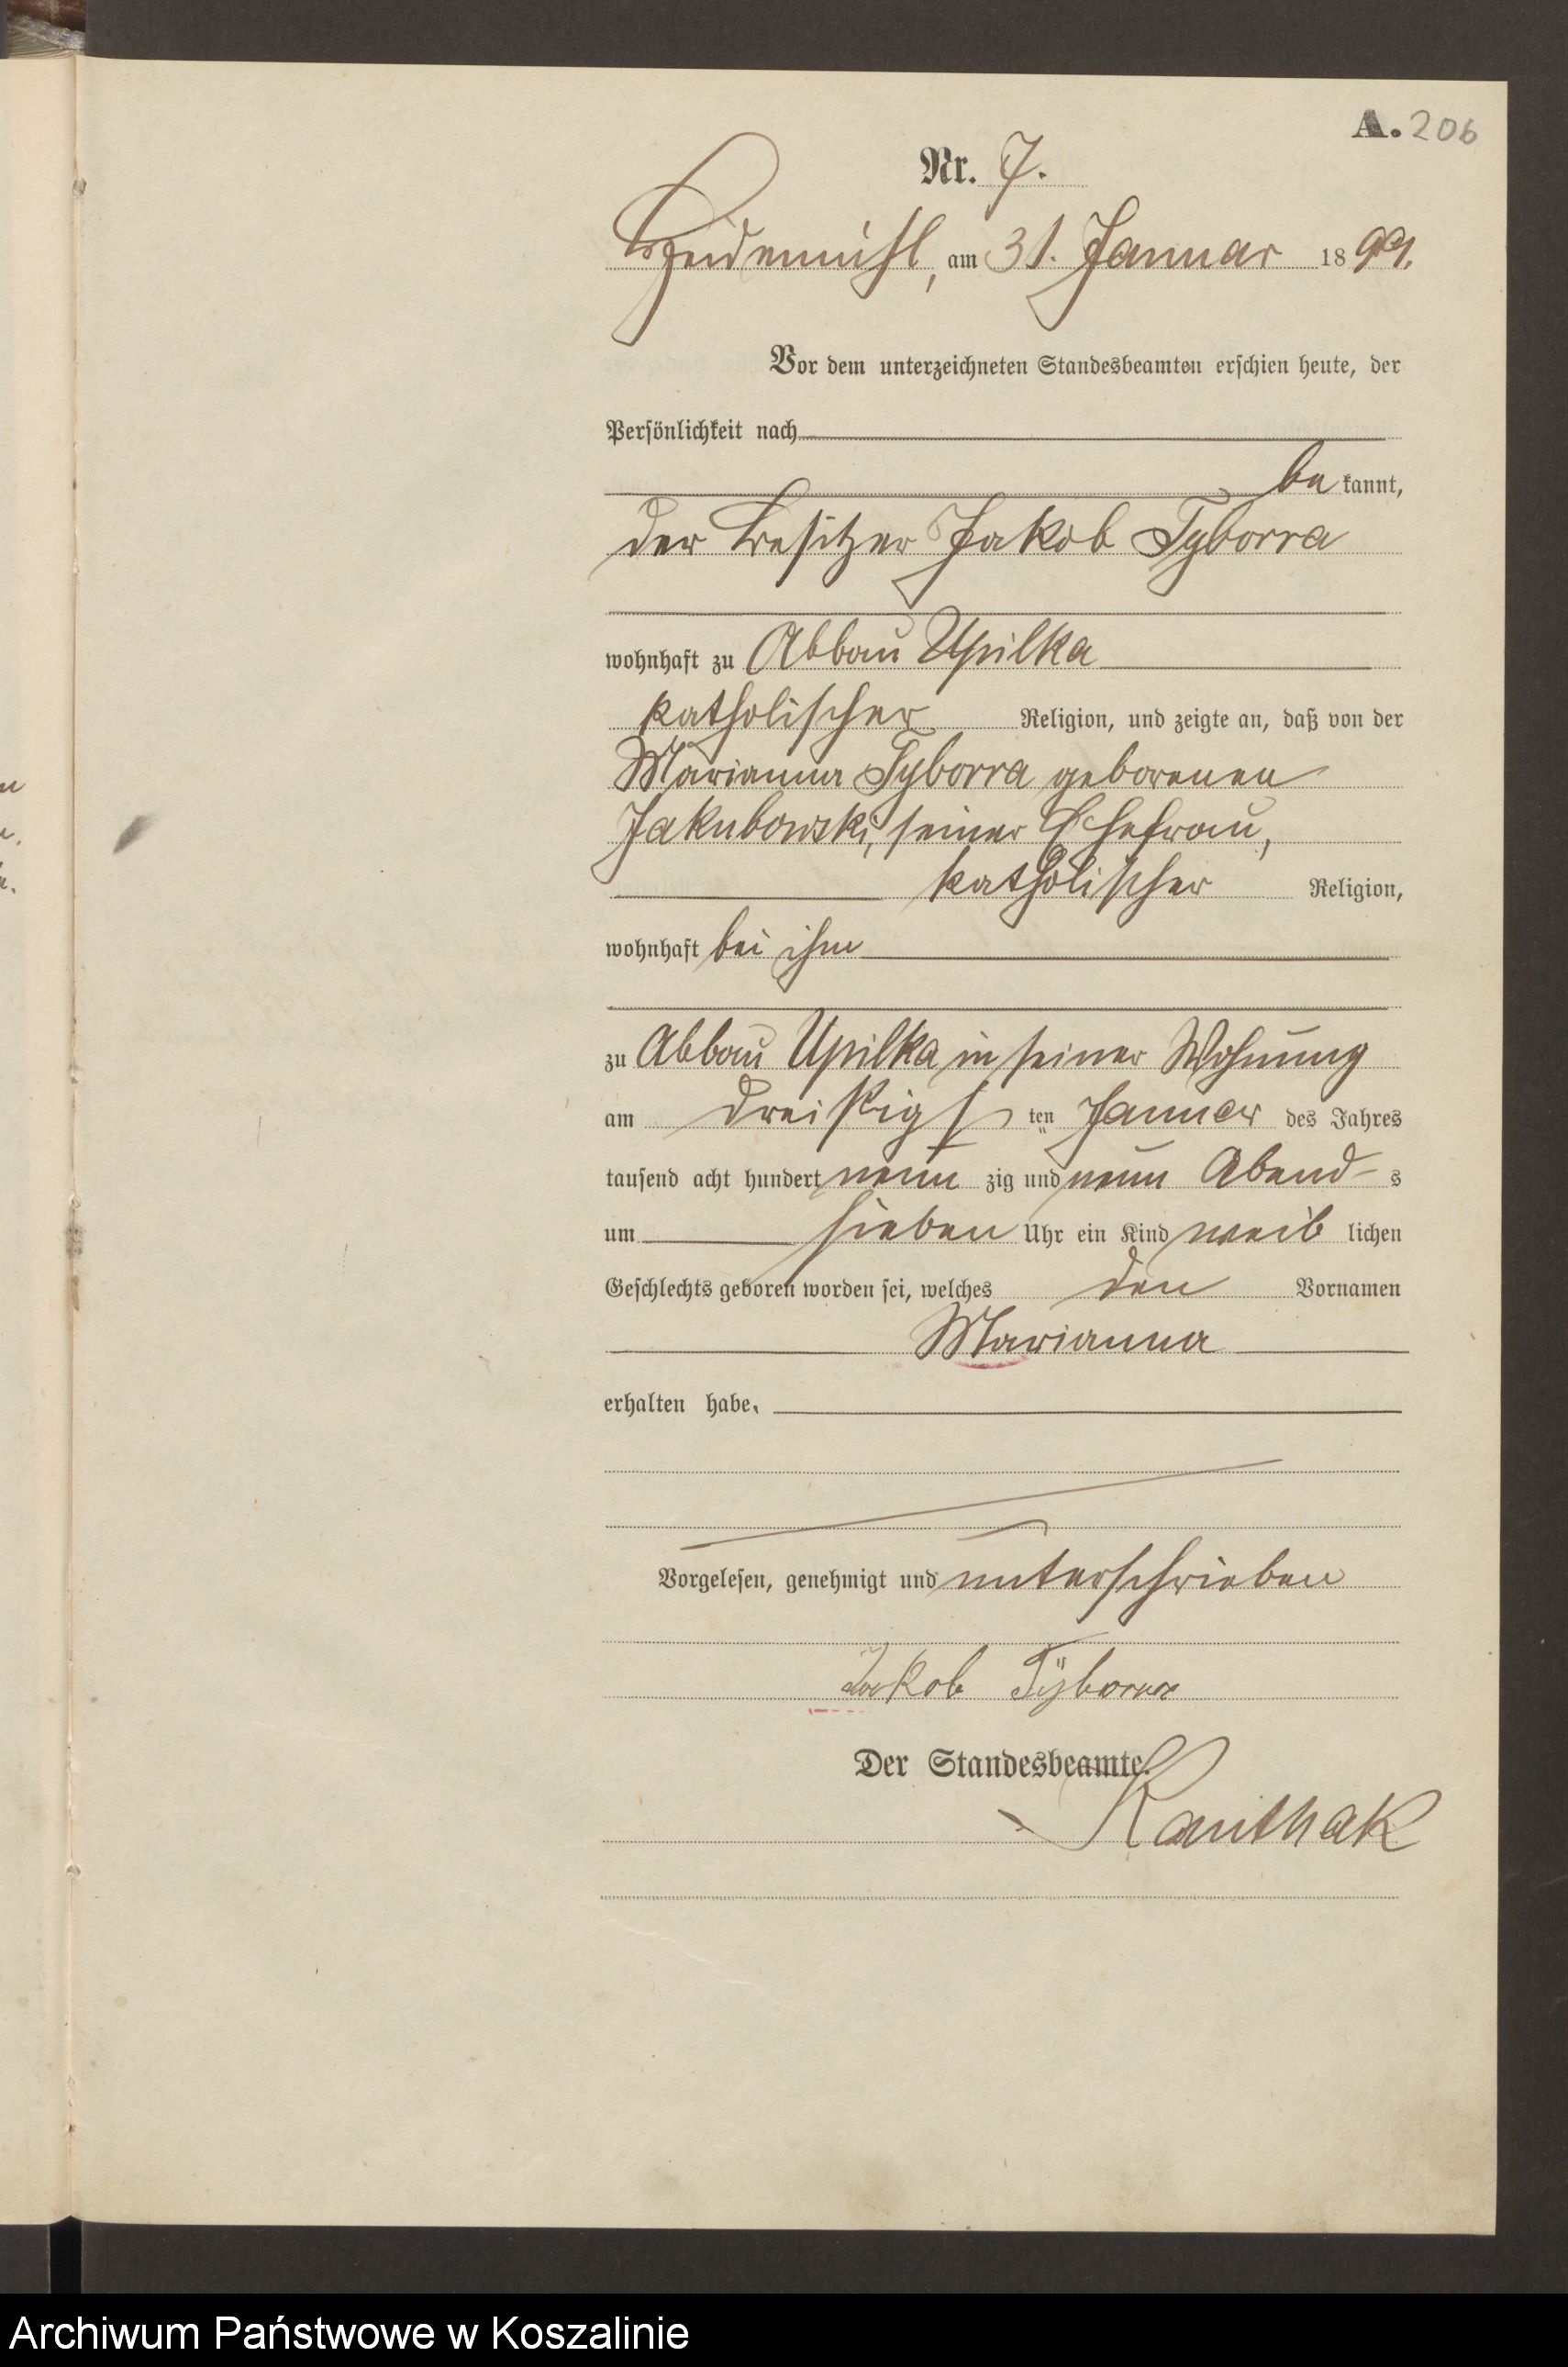 A. 206
Nr. 7.
Heidemühl, am 31. Januar 1899.
Vor dem unterzeichneten Standesbeamten erschien heute, der
Persönlichkeit nach
be kannt,
der Besitzer Jakob Tyborra
wohnhaft zu Abbau Upilka
katholischer Religion, und zeigte an, daß von der
Marianna Tyborra geborenen
Jakubowski, seiner Ehefrau,
katholischer Religion,
wohnhaft bei ihm
zu Abbau Upilka in seiner Wohnung
am dreißigsten Januar des Jahres
tausend acht hundert neun zig und neun Abend s
um sieben Uhr ein Kind weib lichen
Geschlechts geboren worden sei, welches den Vornamen
Marianna
erhalten habe.
Vorgelesen, genehmigt und unterschrieben
Jakob Tÿborra
Der Standesbeamte.
Kanthak
Archiwum Państwowe w Koszalinie